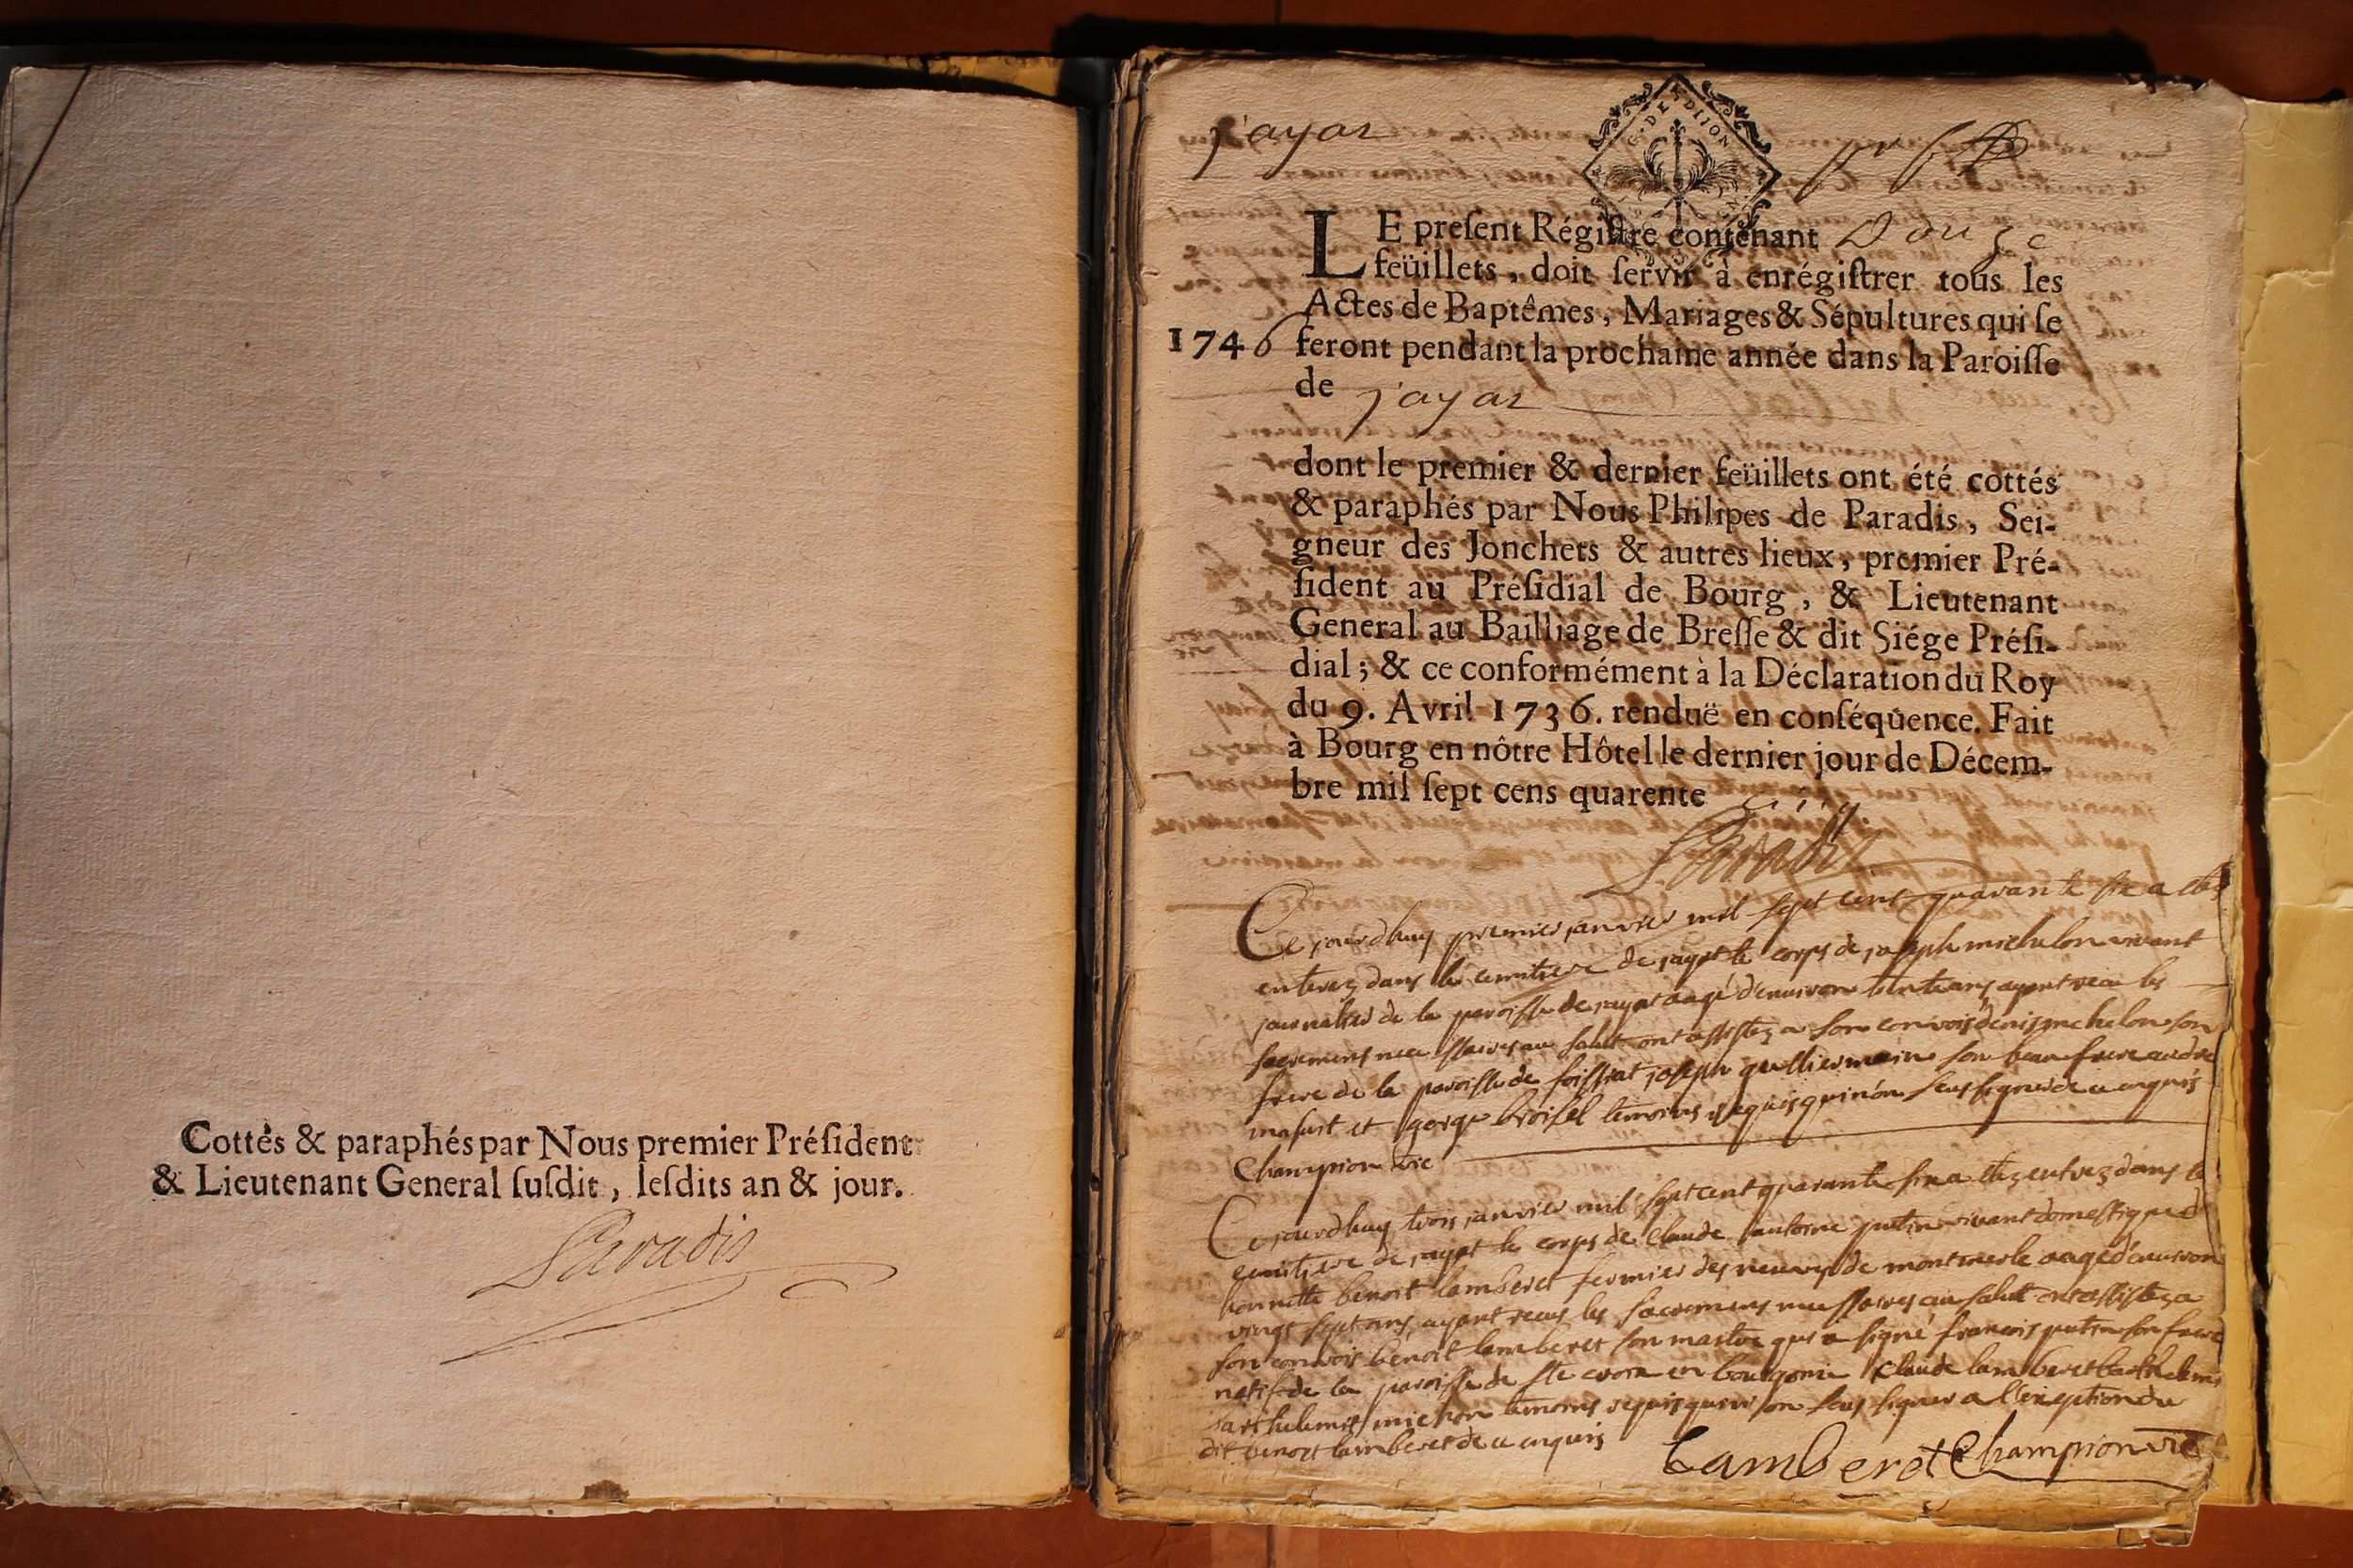 Cottés & paraphés par Nous premier Préſident
& Lieutenant General ſuſdit, leſdits an & jour.
Paradis
jayat
G. DE DIJON
LE preſent Régiſtre contenant Douze
feüillets, doit ſervir à enrégiſtrer tous les
Actes de Baptêmes, Mariages & Sépultures qui ſe
1746 feront pendant la prochaine année dans la Paroiſſe
de jayat
dont le premier & dernier feüillets ont été cottés
& paraphés par Nous Philipes de Paradis, Sei-
gneur des Jonchets & autres lieux, premier Pré-
ſident au Préſidial de Bourg, & Lieutenant
General au Bailliage de Breſſe & dit Siége Préſi-
dial; & ce conformément à la Déclaration du Roy
du 9. Avril 1736. renduë en conſéquence. Fait
à Bourg en nôtre Hôtel le dernier jour de Décem-
bre mil ſept cens quarente cinq
Paradis
Ce jourdhuy premier janvier mil sept cent quarante six a etez
enterez dans le cemitiere de jayat le corps de joseph michelon vivant
journalier de la paroisse de jayat aagé d'environ ans ayant recu les
sacremens necessaires au salut ont assistez a son convois denis michelon son
frere de la paroisse de foissiat joseph guilliermain son beau frere andre
mafust et george broisel temoins requis qui n'on seus signer de ce enquis
Champion vic
Ce jourdhuy trois janvier mil sept cent quarante six a etez enterez dans le
cemitiere de jayat le corps de Claude antoine putin vivant domestique d
honnette benoit lamberet fermier des revenus de montmerle aagé d'environ
vingt sept ans ayant recus les sacremens necessaires au salut ont assistez a
son convois benoit lamberet son maitre qui a signé francois putin son frere
natif de la paroisse de ste croix en bourgonie Claude lamberet
michon temoins requis qui n'on seus signer a l'exception du
dit benoit lamberet de ce enquis
Lamberet Champion vic